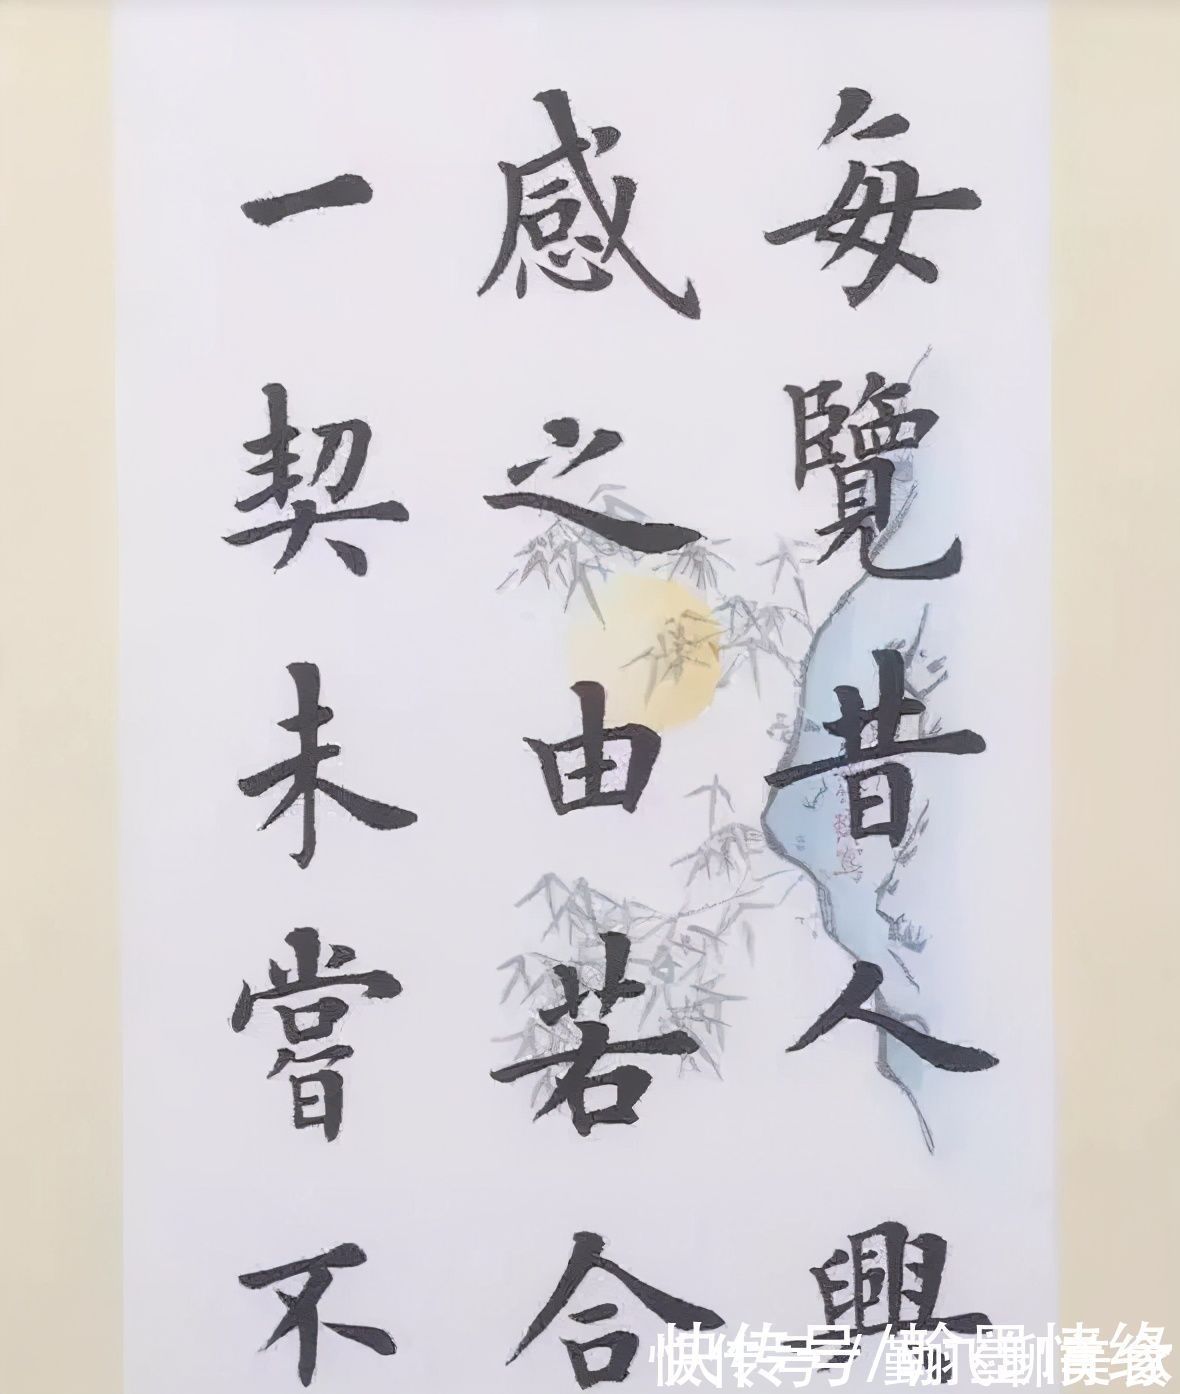 每覽昔人興
感之由若合
一契未嘗不
快传号/翰墨情缘